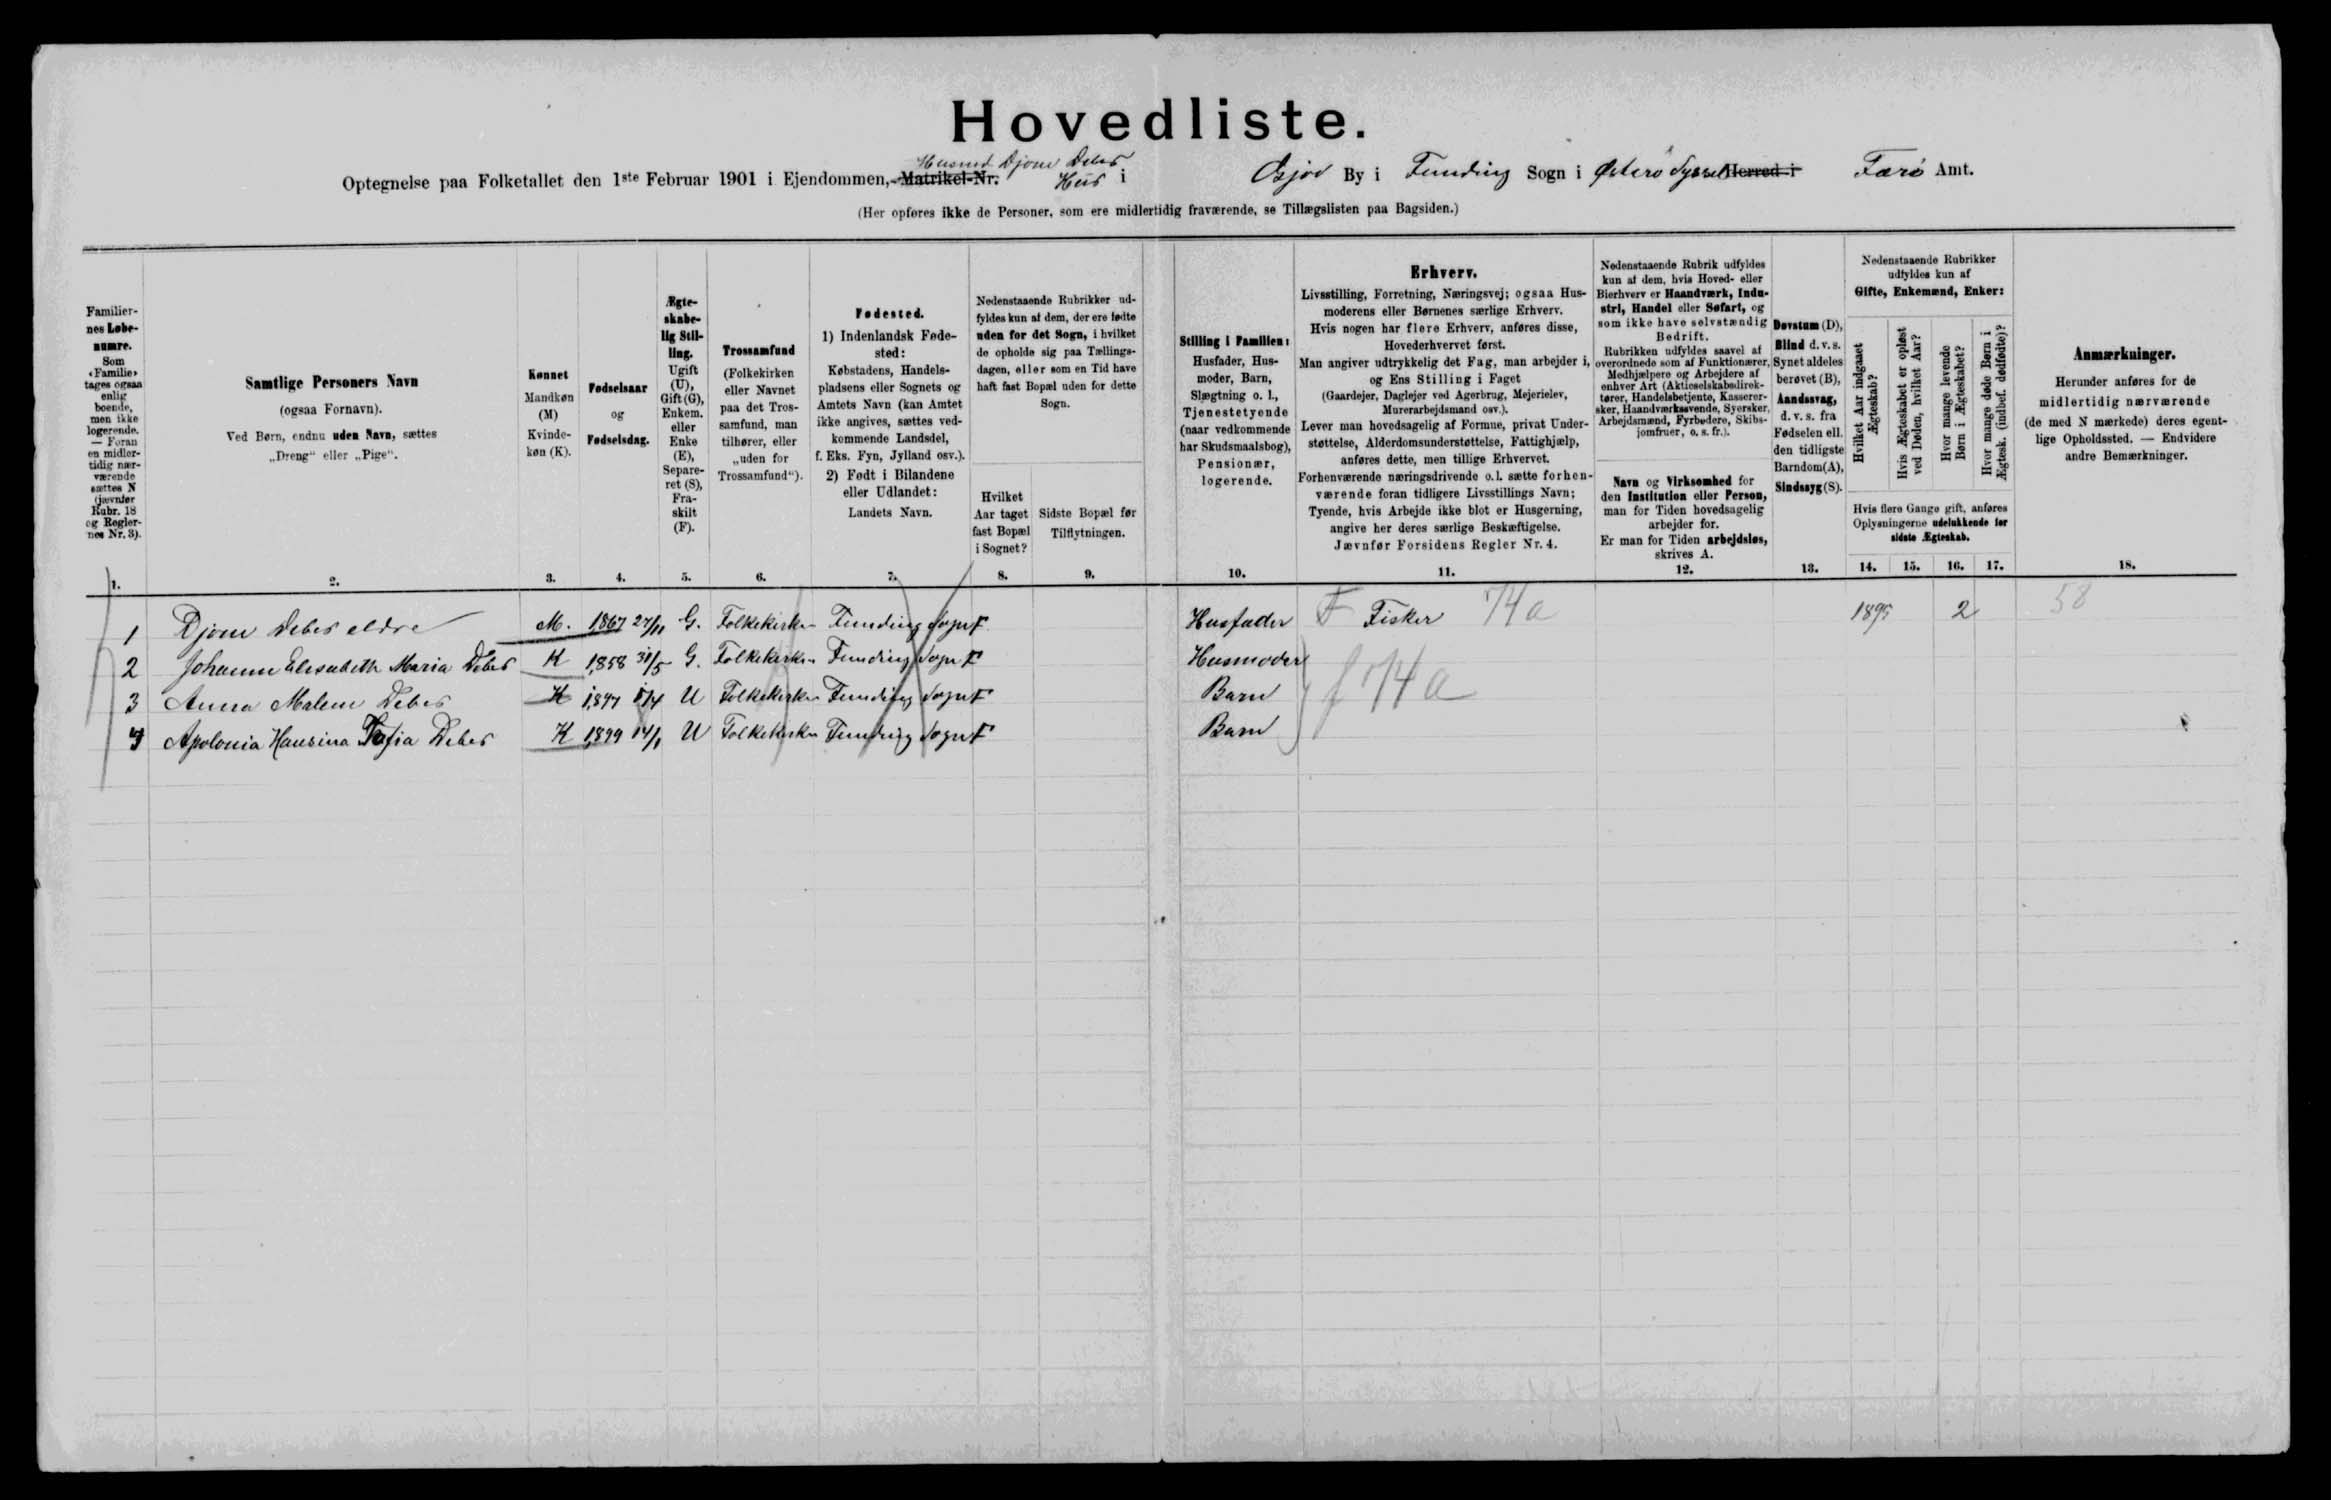 Hovedliste.
Husmd Djone Debes
Optegnelse paa Folketallet den 1ste Februar 1901 i Ejendommen, Matrikel-Nr. Hus i Gjov By i Funding Sogn i Østerø Syssel Herred i Færø Amt.
(Her opføres ikke de Personer, som ere midlertidig fraværende, se Tillægslisten paa Bagsiden.)
Familier-
nes Løbe-
numre.
Som
«Familie»
tages ogsaa
enlig
boende,
men ikke
logerende.
— Foran
en midler-
tidig nær-
værende
sættes N
(jævnfør
Rubr. 18
og Regler-
nes Nr. 3).
1.
Samtlige Personers Navn
(ogsaa Fornavn).
Ved Børn, endnu uden Navn, sættes
„Dreng“ eller „Pige“.
2.
Kønnet
Mandkøn
(M)
Kvinde-
køn (K).
3.
Fødselsaar
og
Fødselsdag.
4.
Ægte-
skabe-
lig Stil-
ling.
Ugift
(U),
Gift (G),
Enkem.
eller
Enke
(E),
Separe-
ret (S),
Fra-
skilt
(F).
5.
Trossamfund
(Folkekirken
eller Navnet
paa det Tros-
samfund, man
tilhører, eller
„uden for
Trossamfund“).
6.
Fødested.
1) Indenlandsk Føde-
sted:
Købstadens, Handels-
pladsens eller Sognets og
Amtets Navn (kan Amtet
ikke angives, sættes ved-
kommende Landsdel,
f. Eks. Fyn, Jylland osv.).
2) Født i Bilandene
eller Udlandet:
Landets Navn.
7.
Nedenstaaende Rubrikker ud-
fyldes kun af dem, der ere fødte
uden for det Sogn, i hvilket
de opholde sig paa Tællings-
dagen, eller som en Tid have
haft fast Bopæl uden for dette
Sogn.
Hvilket
Aar taget
fast Bopæl
i Sognet?
8.
Sidste Bopæl før
Tilflytningen.
9.
Stilling i Familien:
Husfader, Hus-
moder, Barn,
Slægtning o. l.,
Tjenestetyende
(naar vedkommende
har Skudsmaalsbog),
Pensionær,
logerende.
10.
Erhverv.
Livsstilling, Forretning, Næringsvej; ogsaa Hus-
moderens eller Børnenes særlige Erhverv.
Hvis nogen har flere Erhverv, anføres disse,
Hovederhvervet først.
Man angiver udtrykkelig det Fag, man arbejder i,
og Ens Stilling i Faget
(Gaardejer, Daglejer ved Agerbrug, Mejerielev,
Murerarbejdsmand osv.).
Lever man hovedsagelig af Formue, privat Under-
støttelse, Alderdomsunderstøttelse, Fattighjælp,
anføres dette, men tillige Erhvervet.
Forhenværende næringsdrivende o. l. sætte forhen-
værende foran tidligere Livsstillings Navn;
Tyende, hvis Arbejde ikke blot er Husgerning,
angive her deres særlige Beskæftigelse.
Jævnfør Forsidens Regler Nr. 4.
11.
Nedenstaaende Rubrik udfyldes
kun af dem, hvis Hoved- eller
Bierhverv er Haandværk, Indu-
stri, Handel eller Søfart, og
som ikke have selvstændig
Bedrift.
Rubrikken udfyldes saavel af
overordnede som af Funktionærer,
Medhjælpere og Arbejdere af
enhver Art (Aktieselskabsdirek-
tører, Handelsbetjente, Kasserer-
sker, Haandværkssvende, Syersker,
Arbejdsmænd, Fyrbødere, Skibs-
jomfruer, o. s. fr.).
Navn og Virksomhed for
den Institution eller Person,
man for Tiden hovedsagelig
arbejder for.
Er man for Tiden arbejdsløs,
skrives A.
12.
Døvstum (D),
Blind d. v. s.
Synet aldeles
berøvet (B),
Aandssvag,
d. v. s. fra
Fødselen ell.
den tidligste
Barndom (A),
Sindssyg (S).
13.
Nedenstaaende Rubrikker
udfyldes kun af
Gifte, Enkemænd, Enker:
Hvilket Aar indgaaet
Ægteskab?
Hvis Ægteskabet er opløst
ved Døden, hvilket Aar?
Hvor mange levende
Børn i Ægteskabet?
Hvor mange døde Børn i
Ægtesk. (indbef. dødfødte)?
Hvis flere Gange gift, anføres
Oplysningerne udelukkende for
sidste Ægteskab.
14. 15. 16. 17.
Anmærkninger.
Herunder anføres for de
midlertidig nærværende
(de med N mærkede) deres egent-
lige Opholdssted. — Endvidere
andre Bemærkninger.
18.
1 Djone Debes eldre M. 1867 27/11 G. Folkekirken Funding Sogn F Husfader F Fisker 74a 1895 2 58
2 Johanne Elesabeth Maria Debes K 1858 31/5 G. Folkekirken Funding Sogn F Husmoder
3 Anna Malene Debes K 1897 U Folkekirken Funding Sogn F Barn f 74a
4 Apolonia Hansina Sofia Debes K 1899 14/1 U Folkekirken Funding Sogn F Barn